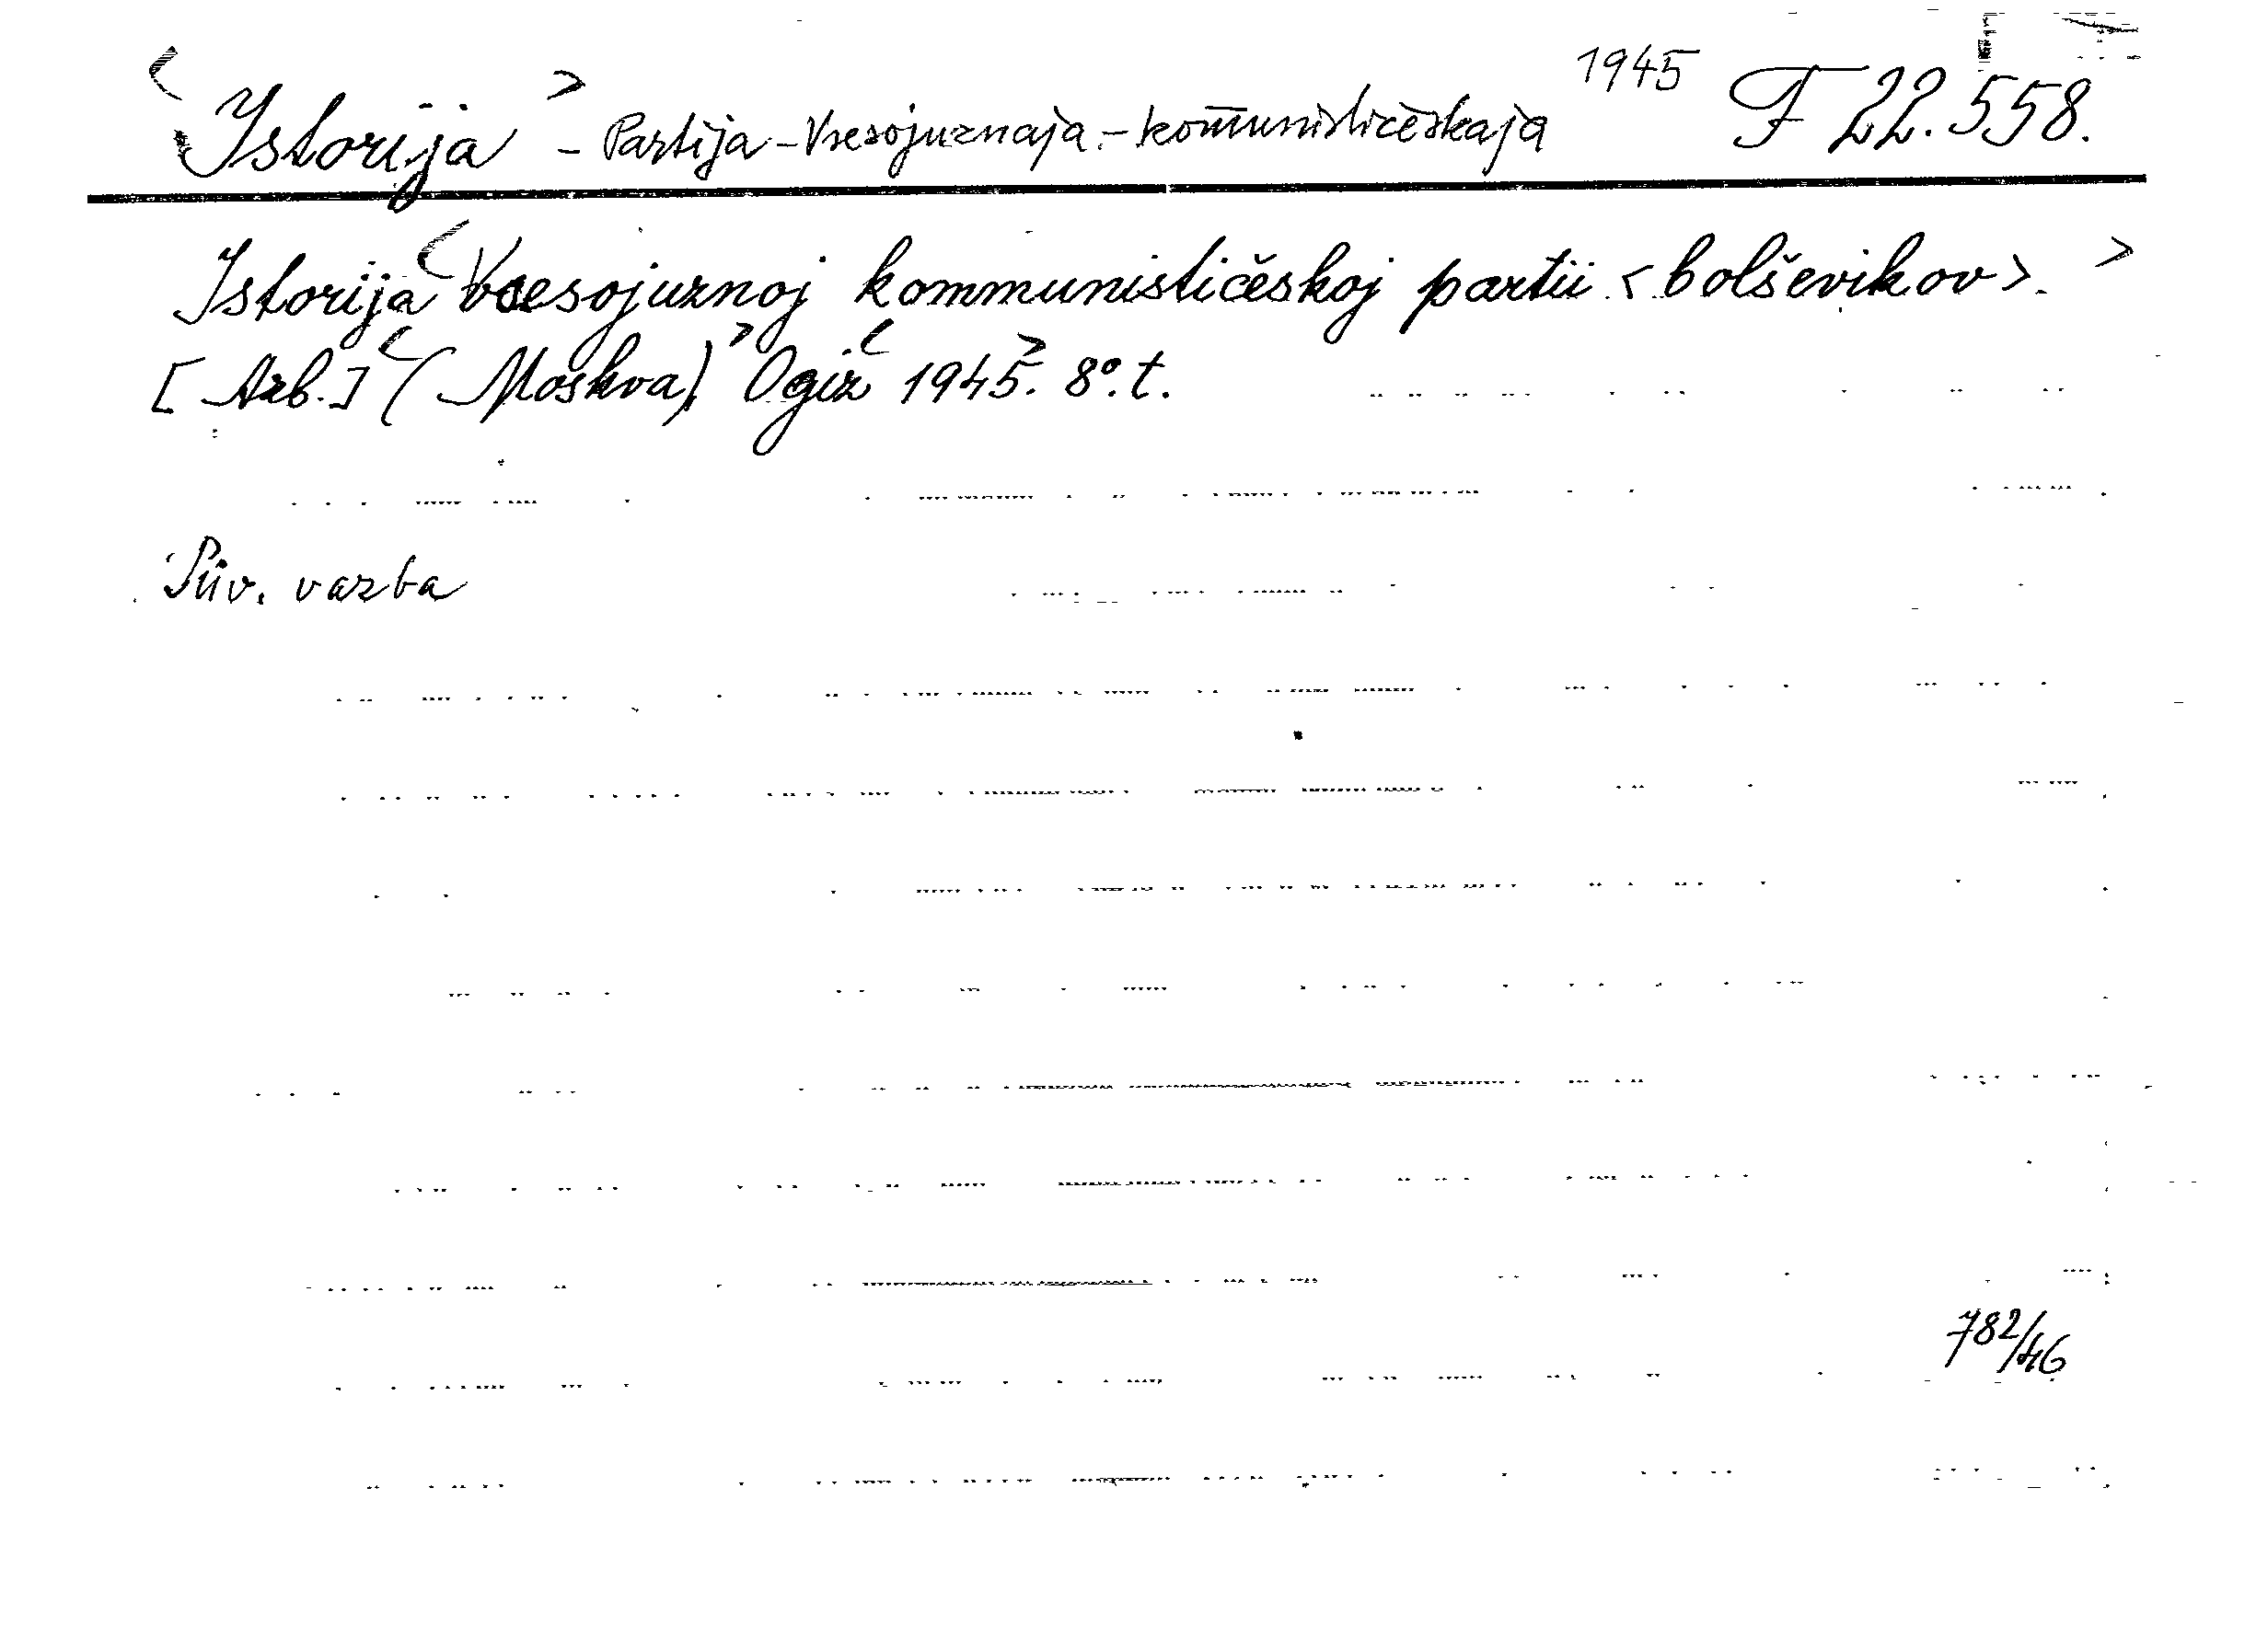 <Istorija> - Partija - Vsesojuznaja - kom̄unističeskaja 1945 F 22.558.
Istorija <Vsesojuznoj kommunističeskoj partii <bolševikov>. >
[Azb.] <(Moskva)> Ogiz <1945>. 8°. t.
Pův. vazba
782/46